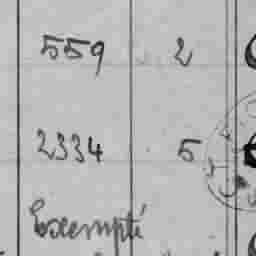 559 2
2334 5
Exempté